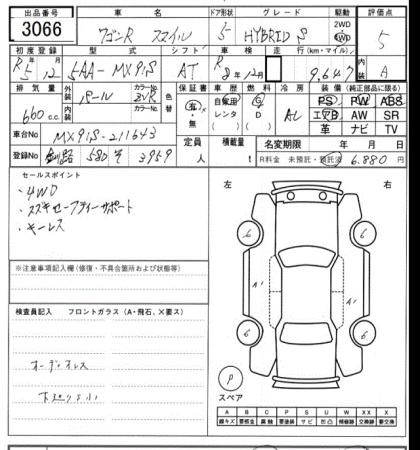 出品番号 車名 ドア形状 グレード 駆動 評価点
3066 ワゴンR スマイル 5 HYBRID S 2WD 4WD 5
初度登録 型式 シフト 車検 走行(km・マイル) 内装
R5 12 5AA-MX91S AT R8年12月 9,647 A
排気量 外装 カラーNo 色替 保証書 車歴 燃料 冷房 装備(純正部品に限る)
660cc パール ZVR 有・無 自家用 レンタ G D AC PS PW ABS
内装 カラーNo エアB AW SR
車台No MX91S-211643 革 ナビ TV
定員 人 積載量 t 名変期限 年 月 日
登録NO 釧路 580 す 3959 R料金 未預託・預託済 6,880円
セールスポイント
・4WD
・スズキセーフティーサポート
・キーレス
左 右
6 6
A1 A1
6 6
P
スペア
※注意事項記入欄(修復・不具合箇所および状態等)
検査員記入 フロントガラス(A・飛石、×要ス)
オーディオレス
下廻りサ小
A B C P S U W X XX
線キズ 要板金 腐蝕 要塗装 サビ 凹凸 補修 交換跡 要交換